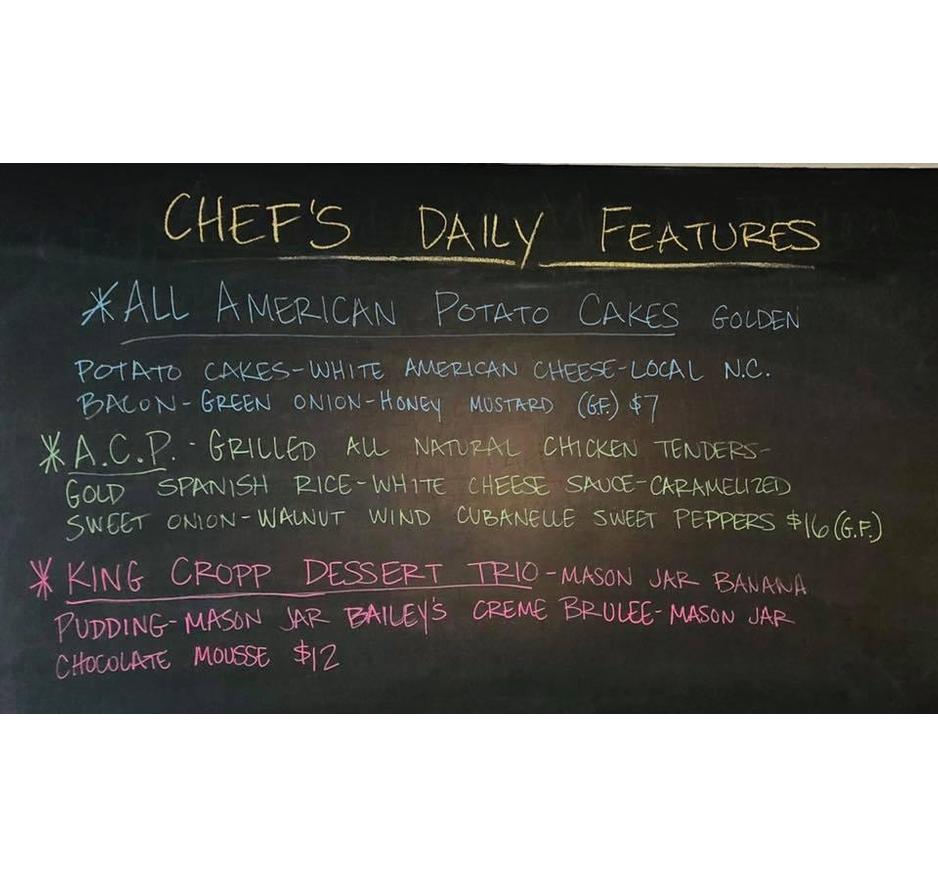 CHEF'S DAILY FEATURES
*ALL AMERICAN POTATO CAKES GOLDEN
POTATO CAKES-WHITE AMERICAN CHEESE-LOCAL N.C.
BACON-GREEN ONION-HONEY MUSTARD (GF.) $7
*A.C.P.-GRILLED ALL NATURAL CHICKEN TENDERS-
GOLD SPANISH RICE-WHITE CHEESE SAUCE-CARAMELIZED
SWEET ONION-WALNUT WIND CUBANELLE SWEET PEPPERS $16 (G.F.)
*KING CROPP DESSERT TRIO-MASON JAR BANANA
PUDDING-MASON JAR BAILEY'S CREME BRULEE-MASON JAR
CHOCOLATE MOUSSE $12